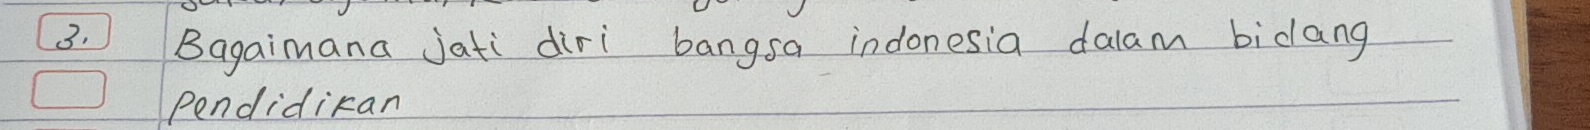 3. Bagaimana jati diri bangsa indonesia dalam bidang
pendidikan